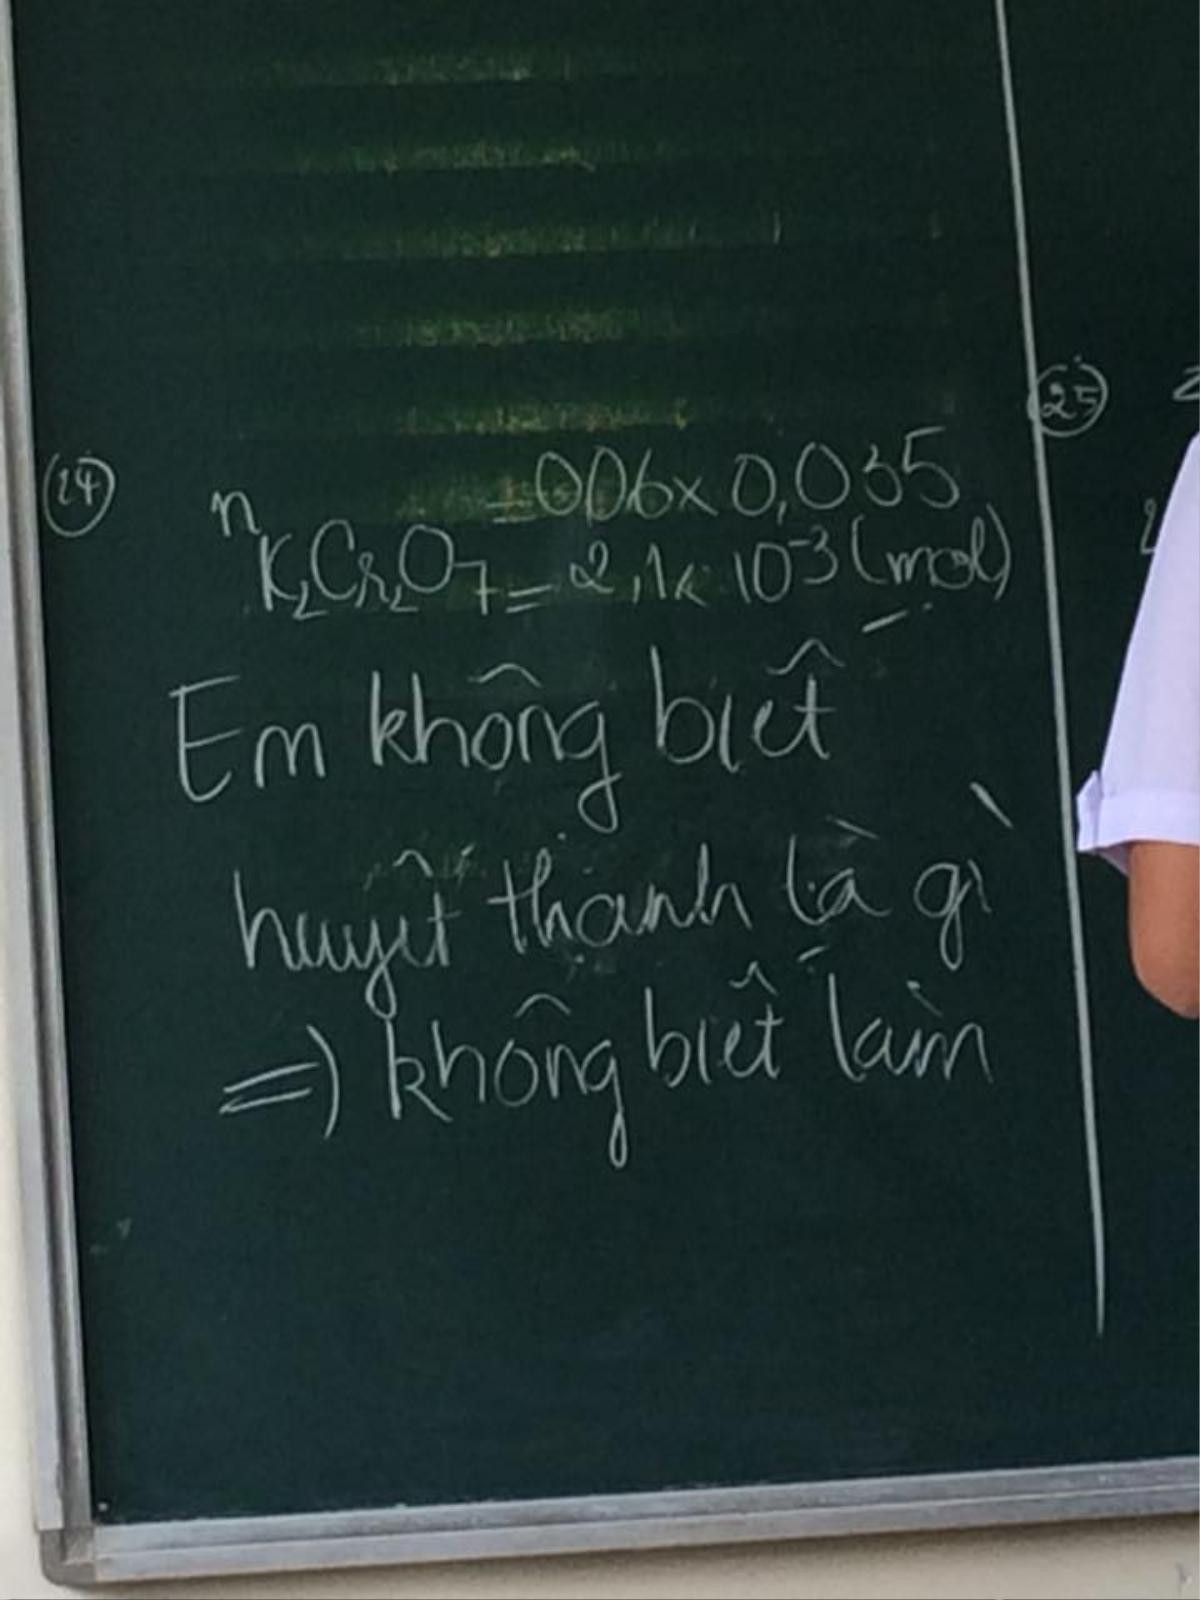 24
n K₂Cr₂O₇ = 006 x 0,035
= 2,1 x 10⁻³ (mol)
Em không biết
huyết thanh là gì
=) không biết làm
25